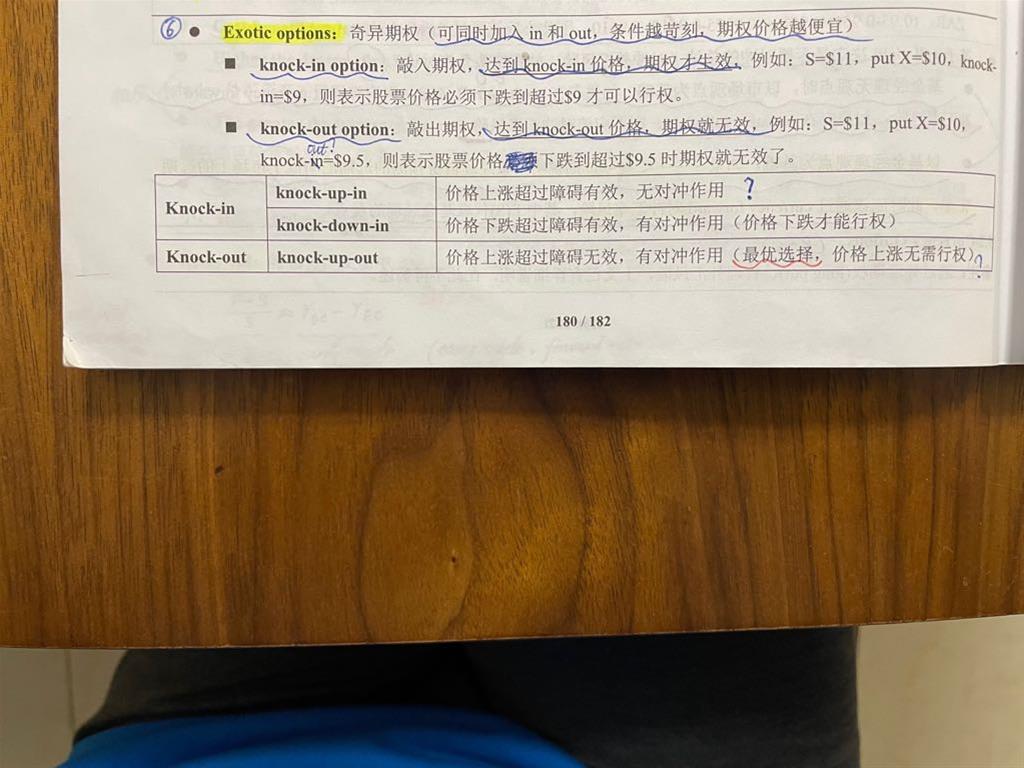 ⑥ ● Exotic options: 奇异期权（可同时加入 in 和 out，条件越苛刻，期权价格越便宜）
■ knock-in option: 敲入期权，达到 knock-in 价格，期权才生效，例如：S=$11，put X=$10, knock-
in=$9，则表示股票价格必须下跌到超过$9 才可以行权。
■ knock-out option: 敲出期权，达到 knock-out 价格，期权就无效，例如：S=$11，put X=$10,
out?
knock-in=$9.5，则表示股票价格下跌到超过$9.5 时期权就无效了。
Knock-in
knock-up-in 价格上涨超过障碍有效，无对冲作用 ?
knock-down-in 价格下跌超过障碍有效，有对冲作用（价格下跌才能行权）
Knock-out knock-up-out 价格上涨超过障碍无效，有对冲作用（最优选择，价格上涨无需行权）?
180 / 182